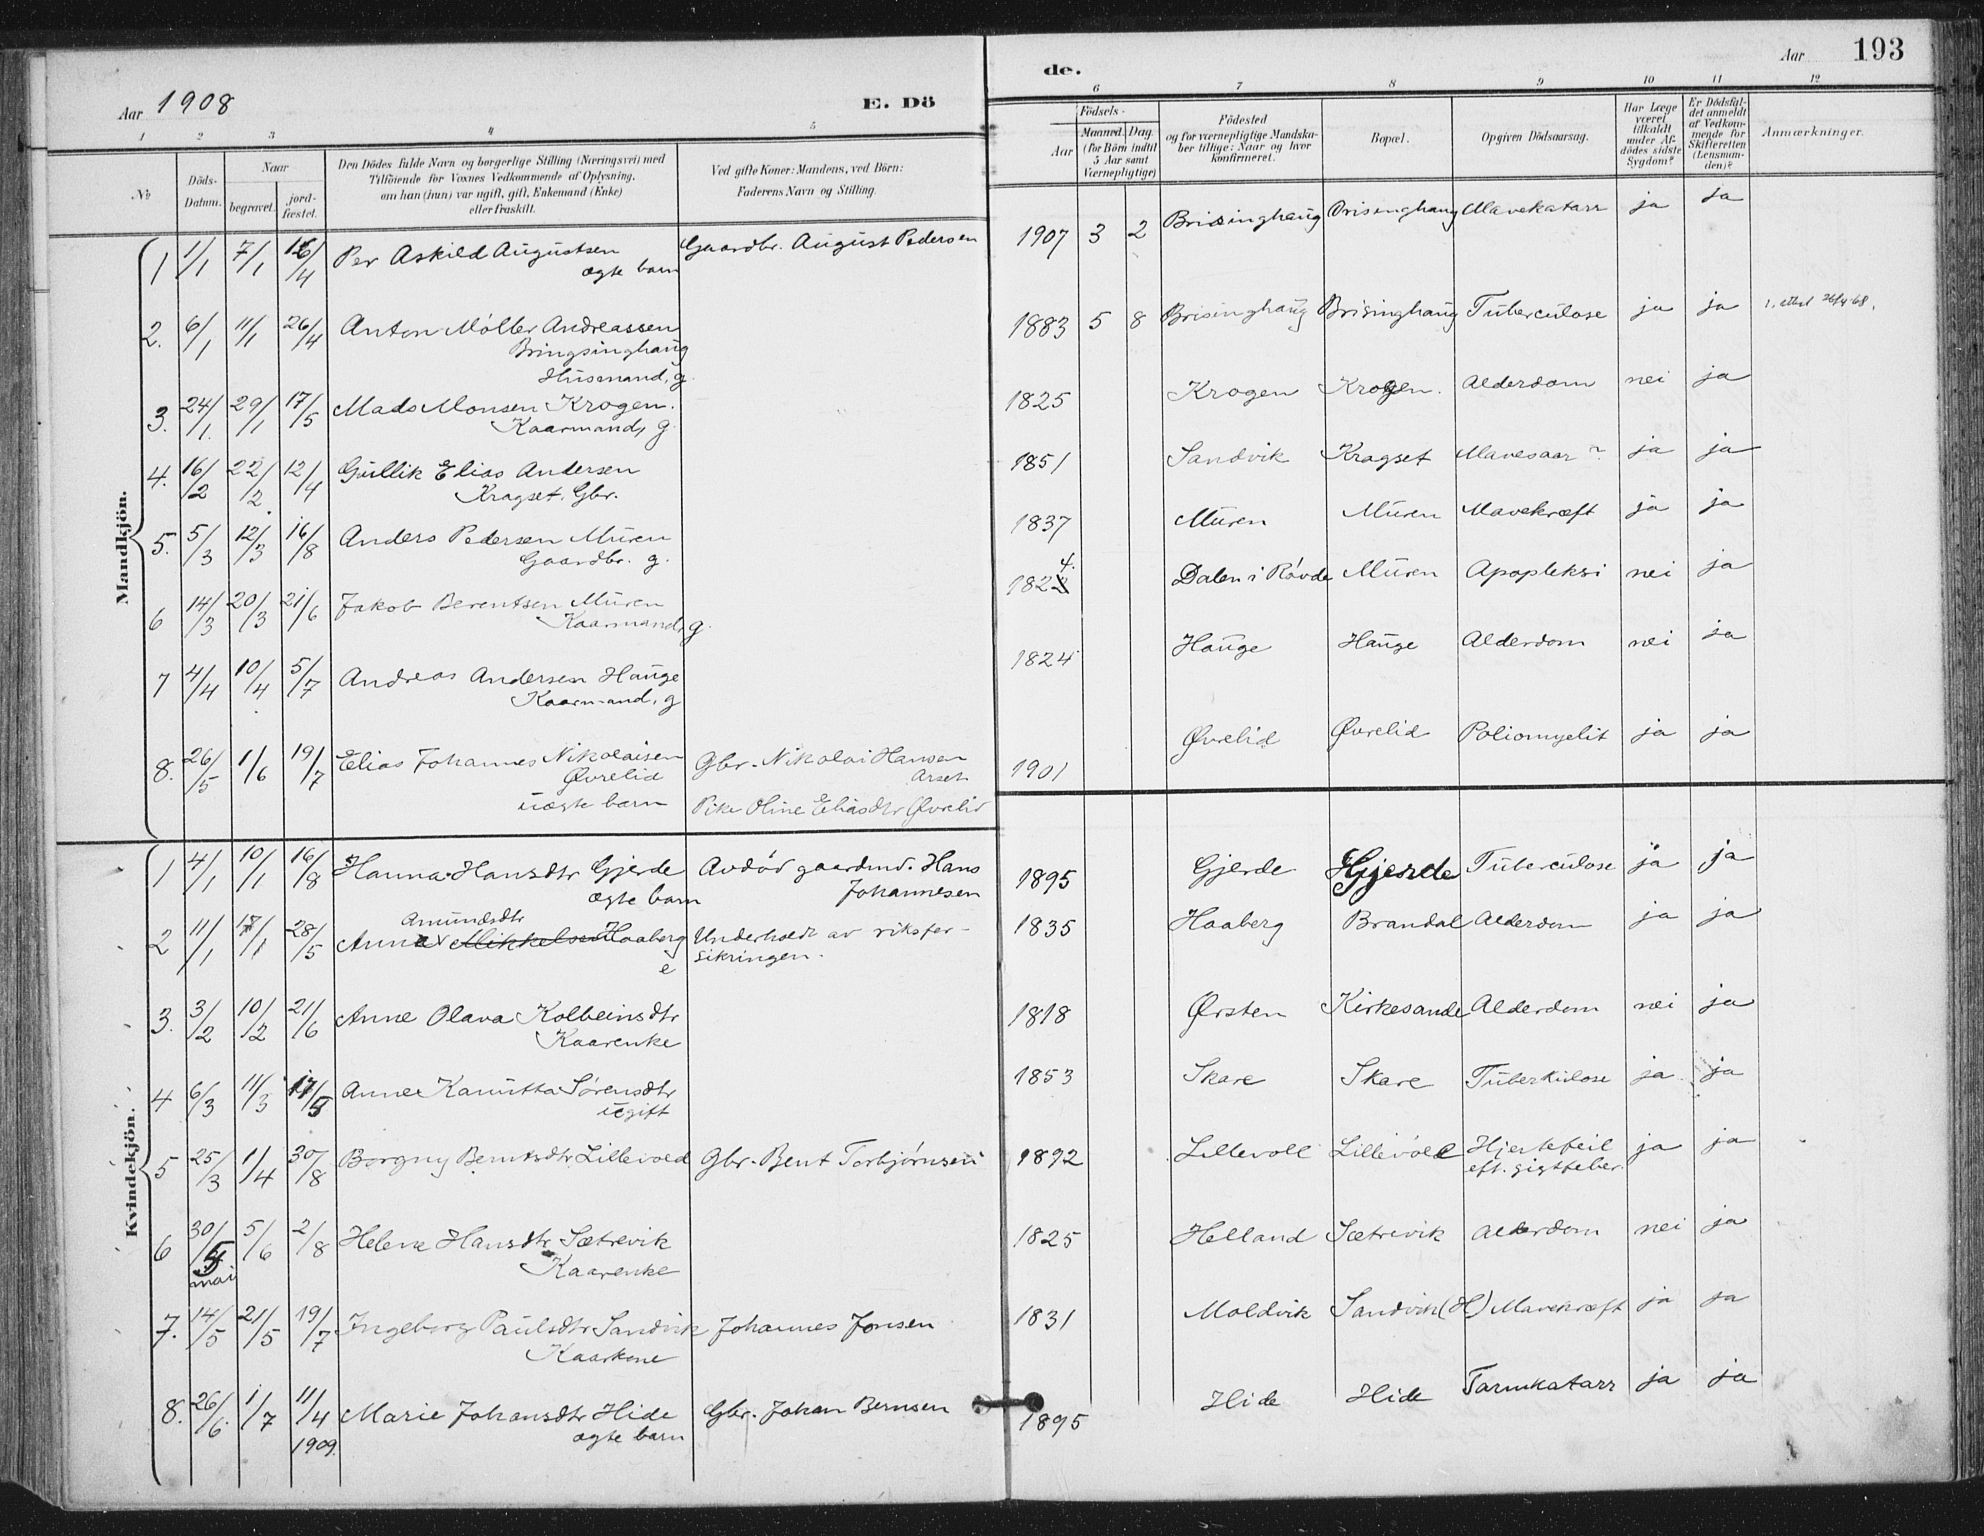 Aar 1908
E. Dö
1 2 3 4 5
№
Döds-
Datum.
Naar
begravet.
jord-
fæstet.
Den Dödes fulde Navn og borgerlige Stilling (Næringsvei) med
Tilföiende for Voxnes Vedkommende af Oplysning,
om han (hun) var ugift, gift, Enkemand (Enke)
eller fraskilt.
Ved gifte Koner: Mandens, ved Börn:
Faderens Navn og Stilling.
Mandkjön.
1 1/1 7/1 Per Askild Augustsen Gaardbr. August Pedersen
ægte barn
2. 6/1 11/1 26/4 Anton Møller Andreassen
Bringsinghaug
Husmand, g.
3. 24/1 29/1 17/5 Mads Monsen Krogen.
Kaarmand, g.
4. 16/2 22/2 12/4 Gullik Elias Andersen
Kragset, Gbr.
5. 5/3 12/3 16/8 Anders Pedersen Muren
Gaardbr. g.
6 14/3 20/3 21/6 Jakob Berentsen Muren
Kaarmand, g.
7 4/4 10/4 5/7 Andreas Andersen Hauge
Kaarmand, g
8. 26/5 1/6 19/7 Elias Johannes Nikolaisen Gbr. Nikolai Hansen
Øvrelid Årset
uægte barn Pike Oline Eliasdtr Øvrelid
Kvindekjön.
1 4/1 10/1 16/8 Hanna Hansdtr Gjerde Avdød gaardmd. Hans
ægte barn Johannesen
Amundsdtr
2 11/1 17/1 28/5 Anne Mikkelsen Haaberg Underholdt av riksfor-
e sikringen.
3. 3/2 10/2 21/6 Anne Olava Kolbeinsdtr
Kaarenke
4 6/3 11/3 17/5 Anne Kanutta Sørensdtr
ugift
5 25/3 1/4 30/8 Borgny Bentsdtr Lillevold Gbr. Bent Torbjørnsen
6 30/5 5/6 2/8 Helene Hansdtr Sætrevik
mai Kaarenke
7. 14/5 21/5 19/7 Ingeborg Paulsdtr Sandvik Johannes Jonsen
Kaarkone
8. 26/6 1/7 11/4 Marie Johansdtr Hide Gbr. Johan Bernsen
1909. ægte barn
de.
Aar 193
6 7 8 9 10 11 12
Födsels-
Aar
Maaned. Dag.
(for Börn indtil
5 Aar samt
Værnepligtige)
Födested
og for værnepligtige Mandska-
ber tillige: Naar og hvor
konfirmeret.
Bopæl.
Opgiven Dödsaarsag.
Har Læge
været
tilkaldt
under Af-
dödes sidste
Sygdom?
Er Dödsfal-
det anmeldt
af Vedkom-
mende for
Skifteretten
(Lensman-
den)?
Anmærkninger.
1907 3 2 Brisinghaug Brisinghaug Mavekatarr ja ja
1883 5 8 Brisinghaug Brisinghaug Tuberculose ja ja
1825 Krogen Krogen. Alderdom nei ja
1851 Sandvik Kragset Mavesaar ? ja ja
1837 Muren Muren Mavekræft ja ja
4.
1822 Dalen i Røvde Muren Apopleksi nei ja
1824 Hauge Hauge Alderdom nei ja
1901 Øvrelid Øvrelid Poliomyelit ja ja
1895 Gjerde Gjerde Tuberculose ja ja
1835 Haaberg Brandal Alderdom ja ja
1818 Ørsten Kirkesande Alderdom nei ja
1853 Skare Skare Tuberkulose ja ja
1892 Lillevoll Lillevold Hjertefeil ja ja
eft. gigtfeber.
1825 Helland Sætrevik Alderdom nei ja
1831 Moldvik Sandvik (H) Mavekræft ja ja
1895 Hide Hide Tarmkatarr ja ja